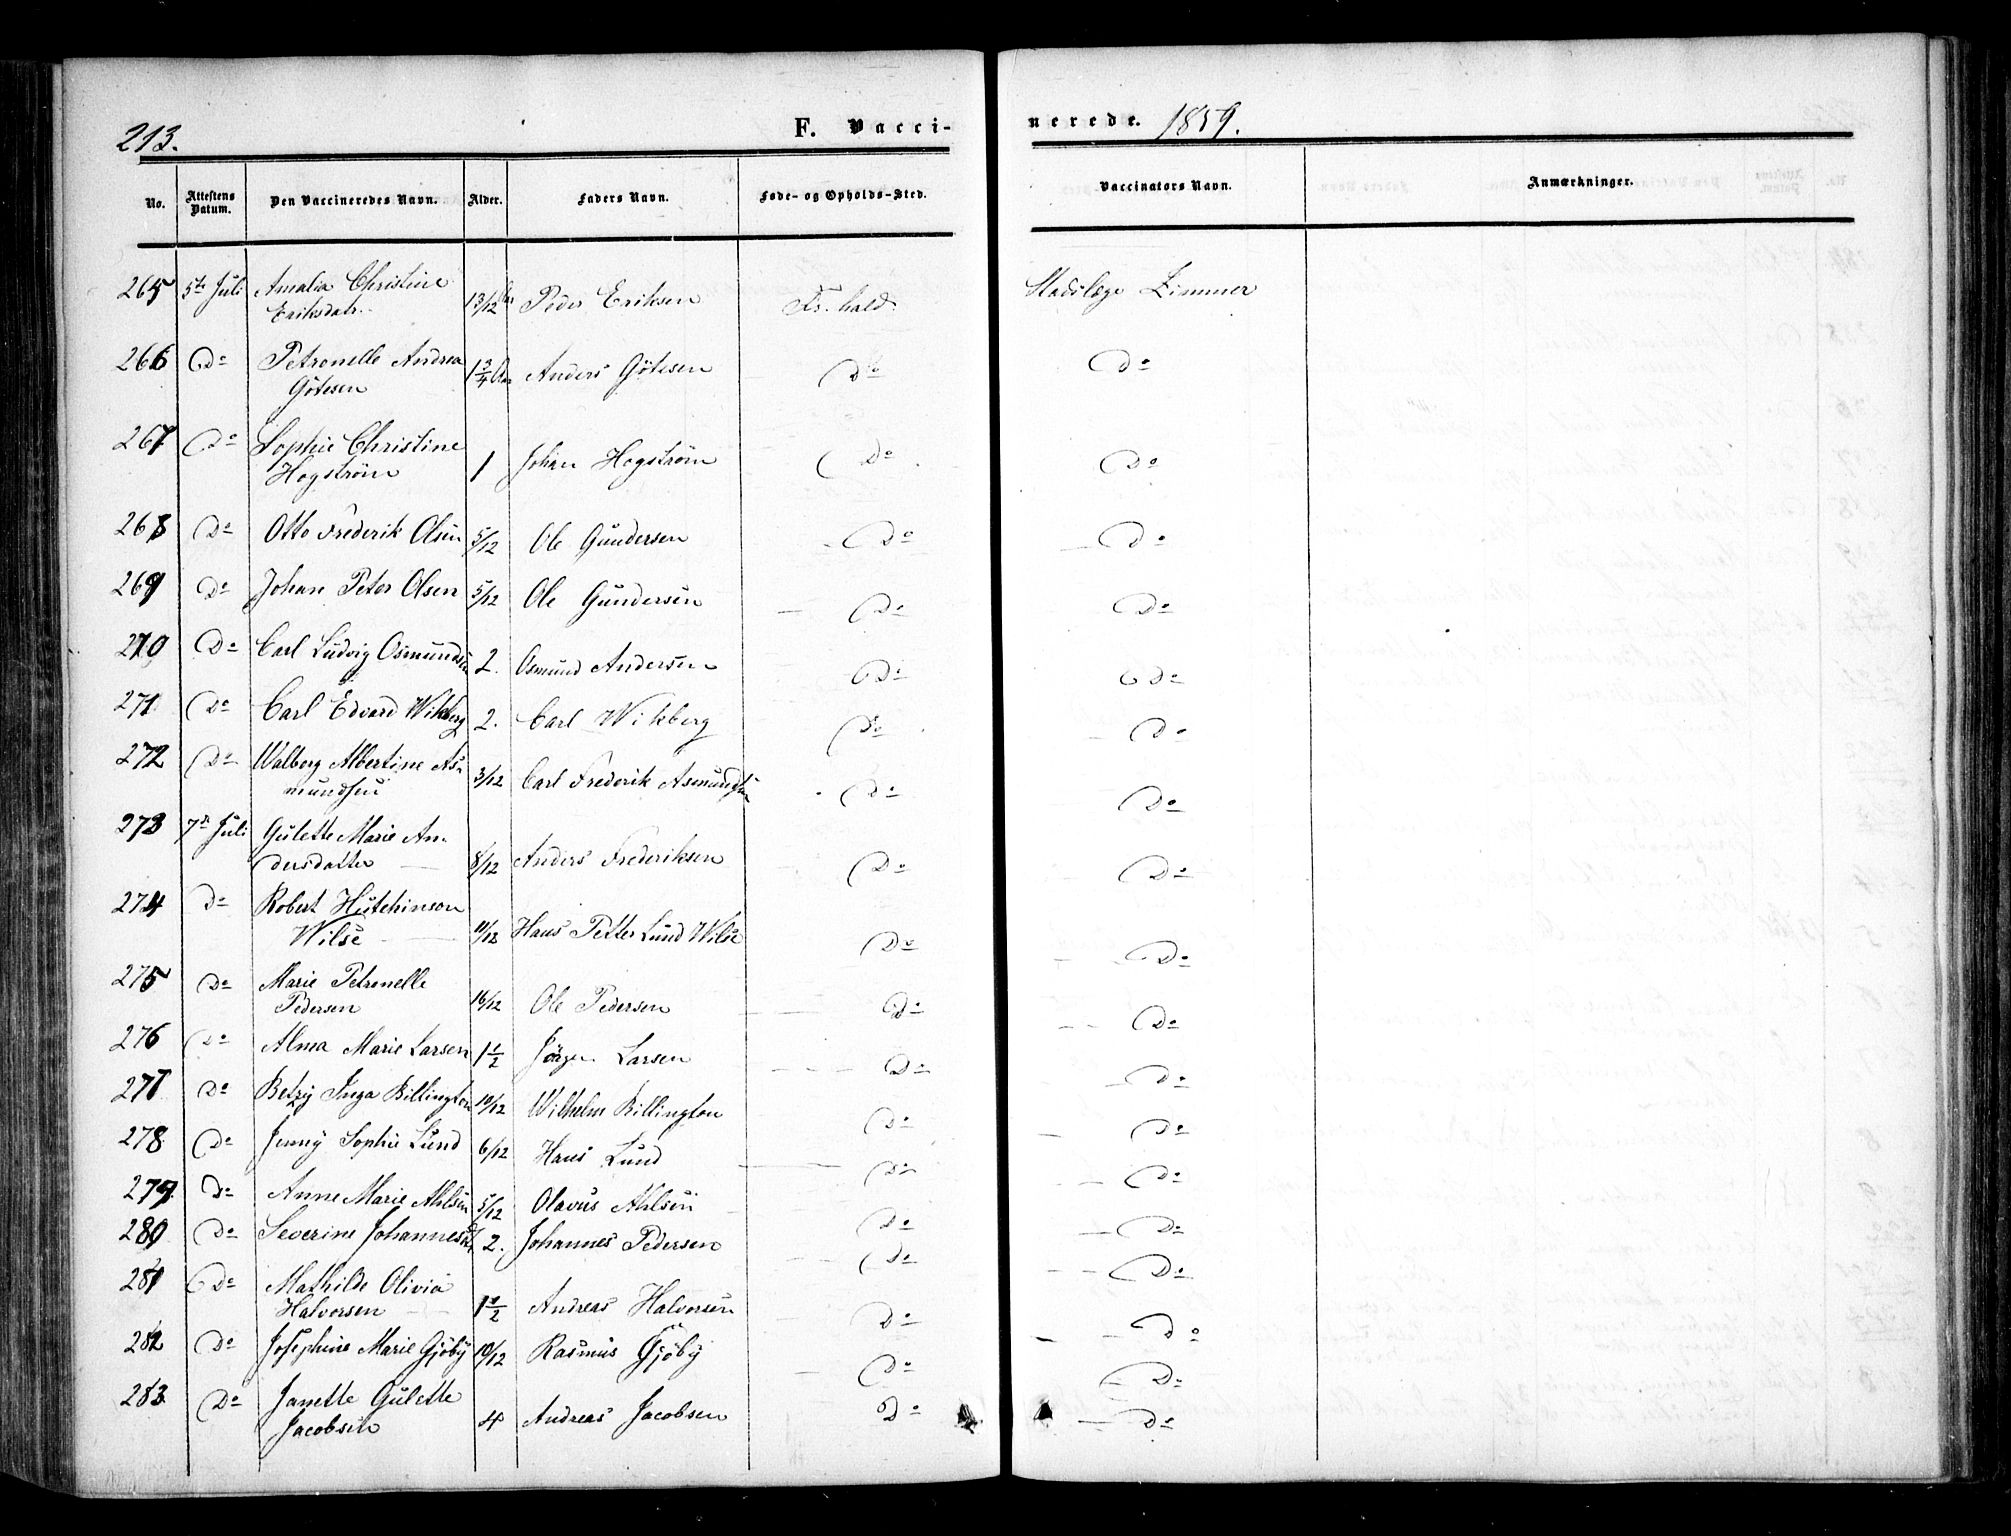 213.
F. Vaccinerede. 1859.
No. Attestens Datum. Den Vaccineredes Navn. Alder. Faders Navn. Føde- og Opholds-Sted. Vaccinators Navn. Anmærkninger.
265 5te Juli Amalia Christine Eriksdatr. 13/12 Aar Peder Eriksen Fr.hald. Stadslæge Zimmer
266 Do Petronelle Andrea Götesen 1 3/4 Aar Anders Götesen Do Do
267 Do Sophie Christine Hogström 1 Johan Hogström Do Do
268 Do Otto Frederik Olsen 5/12 Ole Gundersen Do Do
269 Do Johan Peter Olsen 5/12 Ole Gundersen Do Do
270 Do Carl Ludvig Osmundsen 2. Osmund Andersen Do Do
271 Do Carl Edvard Wikberg 2. Carl Wikberg Do Do
272 Do Walberg Albertine Asmundsen 3/12 Carl Frederik Asmundsen Do Do
273 7de Juli Gulette Marie Andersdatter 8/12 Anders Frederiksen Do Do
274 Do Robert Hutchinson Wilse 11/12 Hans Petter Lund Wilse Do Do
275 Do Marie Petronelle Pedersen 16/12 Ole Pedersen Do Do
276 Do Alma Marie Larsen 1 1/2 Jörgen Larsen Do Do
277 Do Betzy Inga Billington 10/12 Wilhelm Billington Do Do
278 Do Jenny Sophie Lund 6/12 Hans Lund Do Do
279 Do Anne Marie Ahlsen 5/12 Olavus Ahlsen Do Do
280 Do Severine Johannesdtr 2. Johannes Pedersen Do Do
281 Do Mathilde Olivia Halvorsen 1 1/2 Andreas Halvorsen Do Do
282 Do Josephine Marie Gjöby 10/12 Rasmus Gjöby Do Do
283 Do Janette Gulette Jacobsen 4 Andreas Jacobsen Do Do